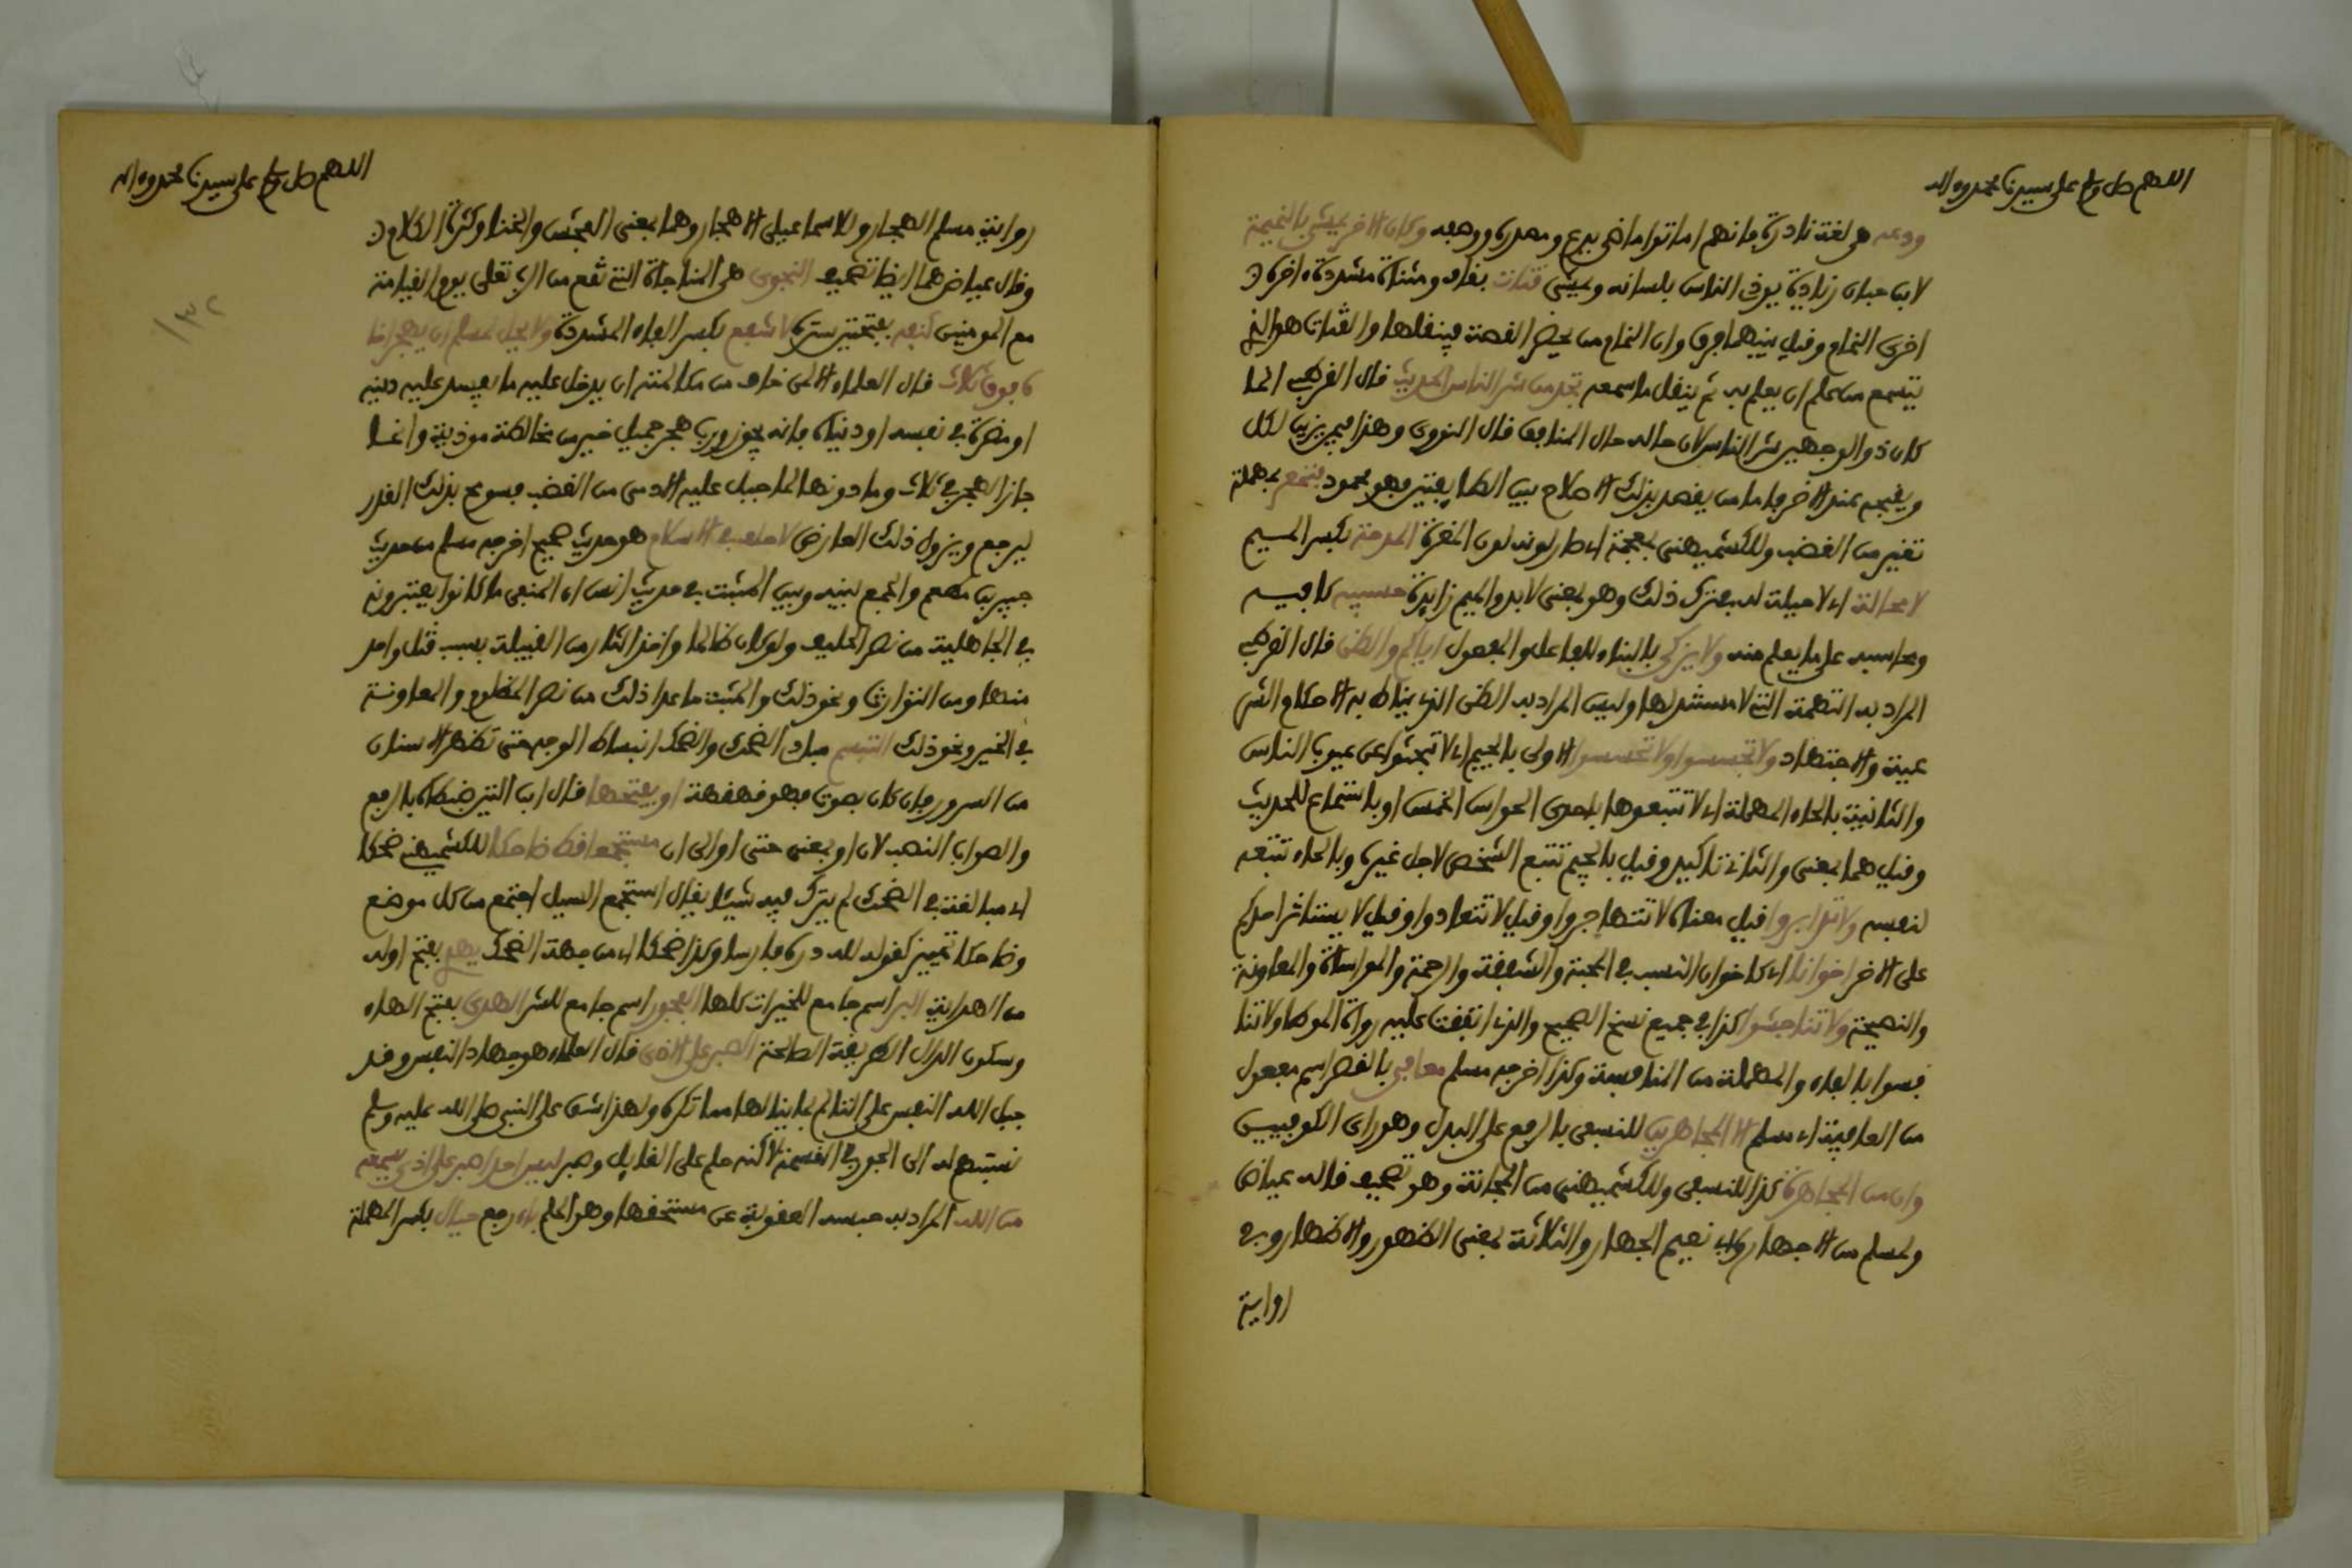 اللهم صل وسلم على سيدنا محمد وءاله
ودعه هي لغة نادرة فانهم اماتوا ماضي يدع ومصدره ووصفه وكان الاخر يمشي بالنميمة
لابن حبان زيادة يوذي الناس بلسانه ويمشي قتات بقاف ومثناة مشددة ءاخره
اخرى النمام وقيل بينهما فرق وان النمام من يحضر القصة فينقلها والقتات هو الذي
يتسمع من علم ان يعلم به ثم ينقل ما سمعه تجد من شر الناس الحديث قال القرطبي انما
كان ذو الوجهين شر الناس لان حاله حال المنافق قال النووي وهذا فيمن يزين لكل
ويقبح عند الاخر فاما من يقصد بذلك الاصلاح بين الطايفتين فهو محمود فتمعر بمهملة
تغير من الغضب وللكشميهني بمعجمة اي صار لونه لون المغرة المدحة بكسر الميم
لا محالة اي لا حيلة له بترك ذلك وهو بمعنى لا بد والميم زايدة حسيبه كافيه
ومحاسبه على ما يعلم منه ولا يزكى بالبناء للفاعل والمفعول اياكم والظن قال القرطبي
المراد به التهمة التي لا مستند لها وليس المراد به الظن الذي يناط به الاحكام الشر
عية والاجتهاد ولا تجسسوا ولا تحسسوا الاولى بالجيم اي لا تبحثوا عن عيوب الناس
والثانية بالحاء المهملة اي لا تتبعوها باحدى الحواس الخمس او باستماع للحديث
وقيل هما بمعنى والثاني تاكيد وقيل بالجيم تتبع الشخص لاجل غيره وبالحاء تتبعه
لنفسه ولا تدابروا قيل معناه لا تتهاجروا وقيل لا تتعادوا وقيل لا يستاثر احدكم
على الاخر اخوانا اي كاخوان النسب في المحبة والشفقة والرحمة والمواساة والمعاونة
والنصيحة ولا تناجشوا كذا في جميع نسخ الصحيح والذي اتفقت عليه رواة الموطا ولا تنا
فسوا بالفاء والمهملة من المنافسة وكذا اخرجه مسلم معافى بالقصر اسم مفعول
من العافية اي مسلم الا المجاهرين للنسفي بالرفع على البدل وهو راي الكوفيين
وان من المجاهرة كذا للنسفي وللكشميهني من المجانة وهو تصحيف قاله عياض
ولمسلم من الاجهار ولابي نعيم الجهار والثلاثة بمعنى الظهور والاظهار وفي
رواية
اللهم صل وسلم على سيدنا محمد وءاله
١٣٢
رواية مسلم الهجار وللاسماعيلي الاهجار وهما بمعنى الفحش والخنا وكثرة الكلام
وقال عياض هما ايضا تصحيف النجوى هي المناجاة التي تقع من الرب تعلى يوم القيامة
مع المومنين كنفه بفتحتين ستره لا شفع بكسر الفاء المشددة ولا يحل لمسلم ان يهجر اخا
ه فوق ثلاث قال العلماء الا لمن خاف من مكالمته ان يدخل عليه ما يفسد عليه دينه
او مضرة في نفسه او دنياه فانه يجوز ورب هجر جميل خير من مخالطة موذية وانما
جاز الهجر في ثلاث وما دونها لما جبل عليه الادمي من الغضب فسومح بذلك القدر
ليرجع ويزول ذلك العارض لا حلف في الاسلام هو حديث صحيح اخرجه مسلم من حديث
جبير بن مطعم والجمع بينه وبين المثبت في حديث انس ان المنفي ما كانوا يعتبرونه
في الجاهلية من نصر الحليف ولو كان ظالما واخذ الثار من القبيلة بسبب قتل واحد
منها ومن التوارث ونحو ذلك والمثبت ما عدا ذلك من نصر المظلوم والمعاونة
في الخير ونحو ذلك التبسم مبادئ الضحك والضحك انبساط الوجه حتى تظهر الاسنان
من السرور فان كان بصوت فهو قهقهة او يفتحها قال ابن التين ضبطناه بالرفع
والصواب النصب لان او بمعنى حتى او الى ان مستجمعا قط ضاحكا للكشميهني ضحكا
اي مبالغة في الضحك لم يترك فيه شيئا يقال استجمع السيل اجتمع من كل موضع
وضاحكا تمييز كقوله لله دره فارسا وكذا ضحكا اي من جهة الضحك يهد بفتح اوله
من الهداية البر اسم جامع للخيرات كلها الفجور اسم جامع للشر الهدى بفتح الهاء
وسكون الدال الطريقة الصالحة الصبر على الاذى قال العلماء هو جهاد النفس وقد
جبل الله النفس على التالم بما ينالها مما تكره ولهذا شق على النبي صلى الله عليه وسلم
نسبتهم له الى الجور في القسمة لاكنه حلم على القايل وصبر ليس احد اصبر على اذى سمعه
من الله المراد به حبسه العقوبة عن مستحقها وهو الحلم بان رفع حيال بكسر المهملة